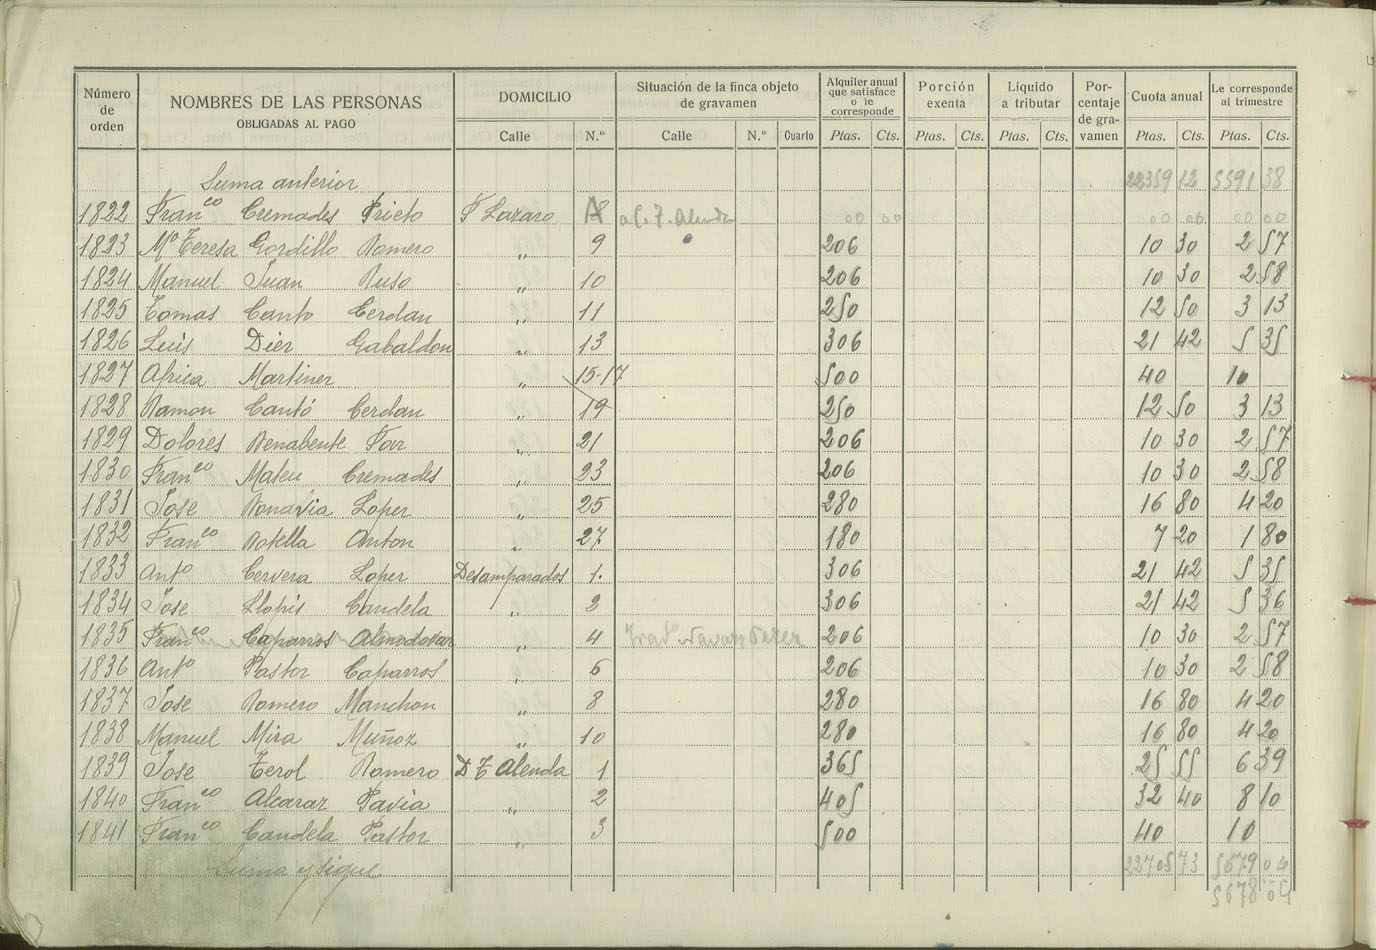 Número de orden NOMBRES DE LAS PERSONAS OBLIGADAS AL PAGO DOMICILIO Situación de la finca objeto de gravamen Alquiler anual que satisface o le corresponde Porción exenta Líquido a tributar Porcentaje de gravamen Cuota anual Le corresponde al trimestre
Calle N.º Calle N.º Cuarto Ptas. Cts. Ptas. Cts. Ptas. Cts. Ptas. Cts. Ptas. Cts.
Suma anterior 22359 12 5591 38
1822 Franco Cremades Prieto F Lazaro a C. F. 00 00 00 00 00 00
1823 Mª Teresa Gordillo Romero „ 9 206 10 30 2 57
1824 Manuel Juan Ruso „ 10 206 10 30 2 58
1825 Tomas Canto Cerdan „ 11 250 12 50 3 13
1826 Luis Dier Gabaldon „ 13 306 21 42 5 35
1827 Africa Martiner „ 15-17 500 40 10
1828 Ramon Cantó Cerdan „ 19 250 12 50 3 13
1829 Dolores Benabente Tor „ 21 206 10 30 2 57
1830 Franco Mateu Cremades „ 23 206 10 30 2 58
1831 Jose Bonavia Loper „ 25 280 16 80 4 20
1832 Franco Botella Anton „ 27 180 7 20 1 80
1833 Anto Cervera Loper Desamparados 1. 306 21 42 5 35
1834 Jose Llopis Candela „ 2 306 21 42 5 36
1835 Franco Caparros Almodovar „ 4 Navarro Perez 206 10 30 2 57
1836 Anto Pastor Caparros „ 6 206 10 30 2 58
1837 Jose Romero Manchon „ 8 280 16 80 4 20
1838 Manuel Mira Muñoz „ 10 280 16 80 4 20
1839 Jose Terol Romero D T Alenda 1 365 25 55 6 39
1840 Franco Alcaraz Pavia „ 2 405 32 40 8 10
1841 Franco Candela Pastor „ 3 500 40 10
Suma y sigue 22705 73 5679 04
5678 04